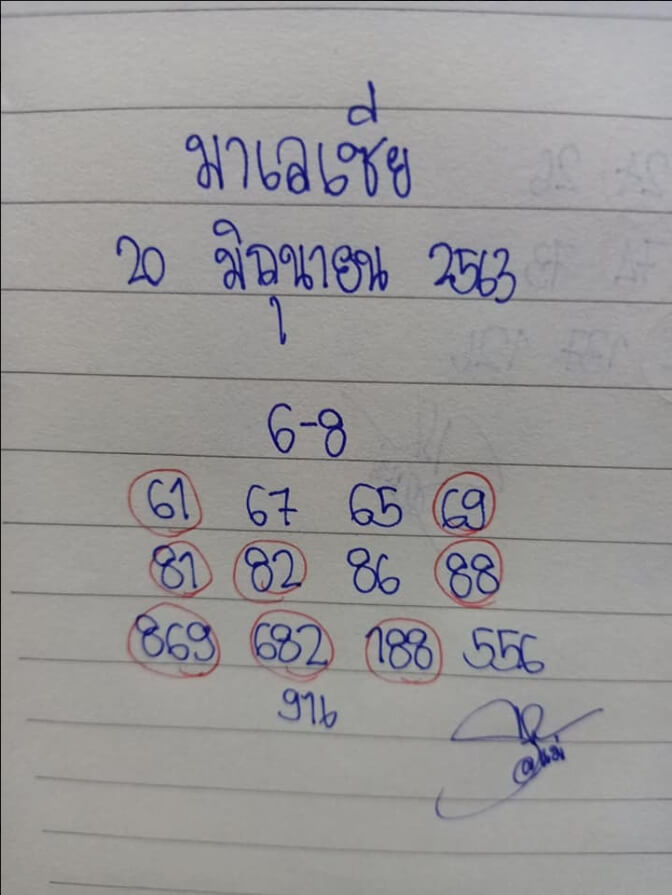 มาเลเซีย
20 มิถุนายน 2563
6-8
61 67 65 69
81 82 86 88
869 682 188 556